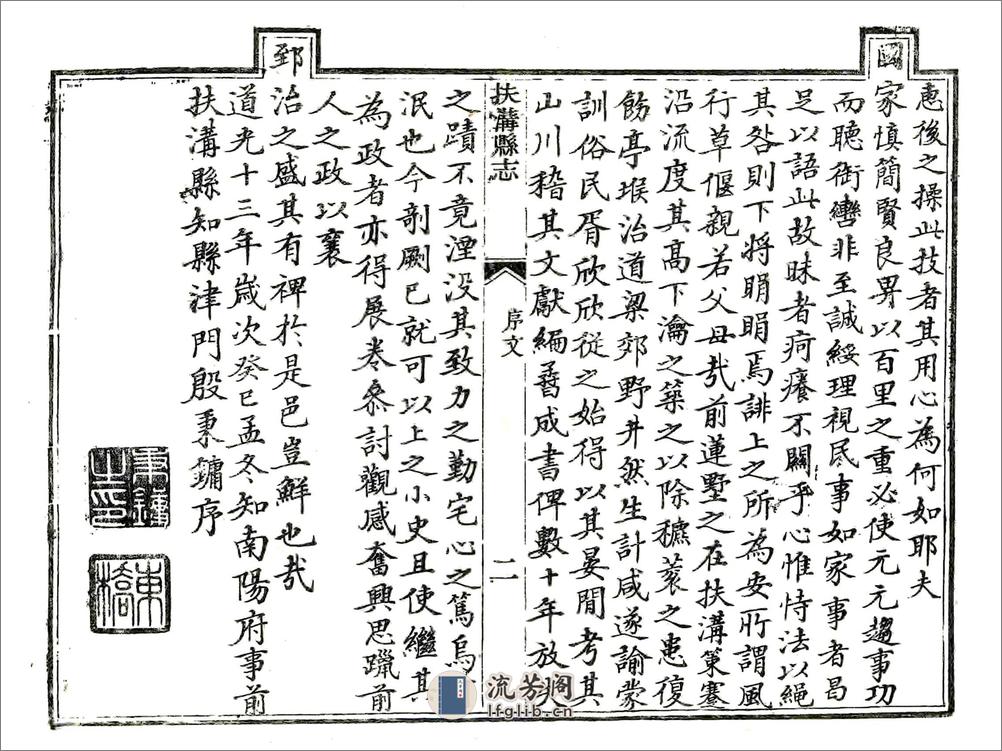 惠後之操此技者其用心為何如耶夫
國家慎簡賢良畀以百里之重必使元元趨事功
而聽銜轡非至誠綏理視民事如家事者曷
足以語此故昧者疴癢不關乎心惟恃法以繩
其咎則下將睊睊焉誹上之所為安所謂風
行草偃親若父母哉前蓮墅之在扶溝策蹇
沿流度其高下瀹之築之以除穮蓘之患復
飭亭堠治道梁郊野井然生計咸遂諭蒙
訓俗民胥欣欣從之始得以其晏閒考其
山川稽其文獻編成書俾數十年放失
扶溝縣志
序文
二
之蹟不竟湮没其致力之勤宅心之篤烏
泯也今剞劂已就可以上之小史且使繼其
為政者亦得展卷叅討觀感奮興思躐前
人之政以襄
郅治之盛其有裨於是邑豈鮮也哉
道光十三年歲次癸巳孟冬知南陽府事前
扶溝縣知縣津門殷秉鏞序
秉鏞之印
流芳阁
lfglib.cn